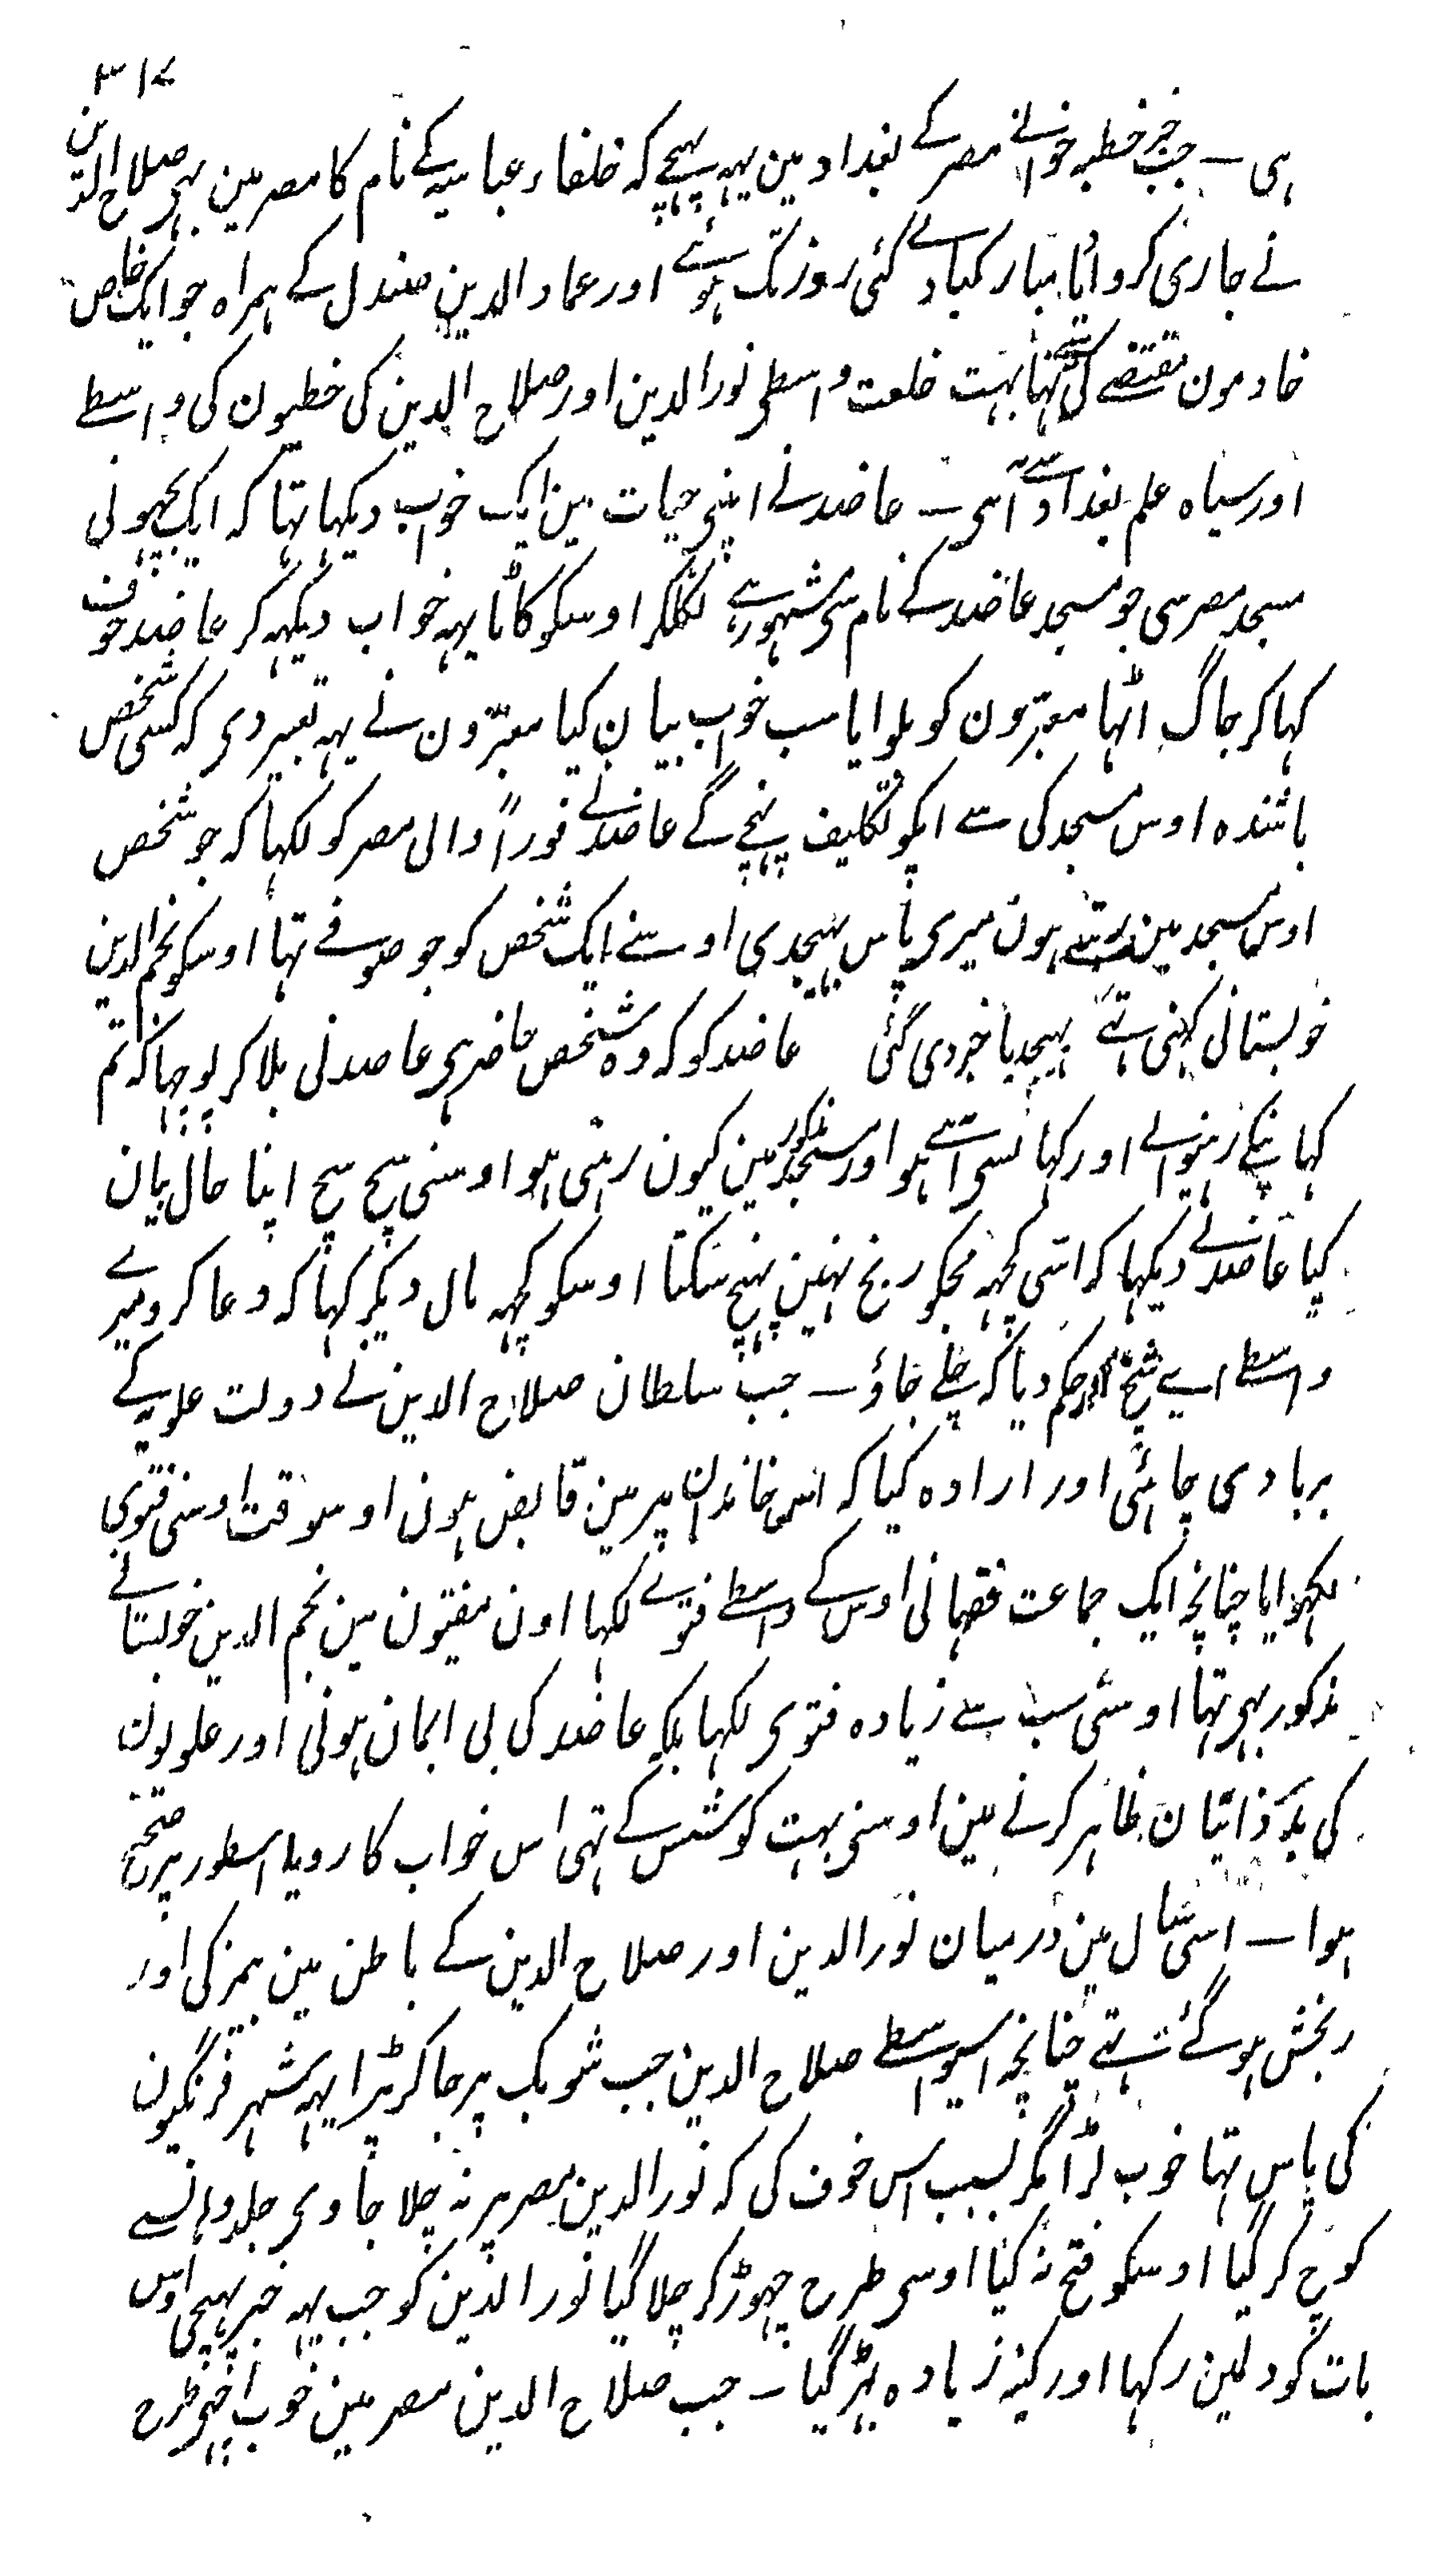 ۳۱۷
ہی ـ جب خبر خطبہ خوانے مصر کے بغداد مین یہہ پہنچے کہ خلفاء عباسیہ کے نام کا مصر مین بہی صلاح الدین
نے جاری کروایا مبارکبادے کئی روز تک ہوئے اور عماد الدین صندل کے ہمراہ جو ایک خاص
خادمون مقتفے کی تہا بہت خلعت واسطی نور الدین اور صلاح الدین کی خطیبون کی واسطے
اور سیاہ علم بغداد سے آئی ـ عاضد نے اپنی حیات مین ایک خواب دیکہا تہا کہ ایک بچہو نی
مسجد مصر سی جو مسجد عاضد کے نام سی مشہور ہے نکلکر اوسکو کاٹا یہہ خواب دیکہہ کر عاضد خوف
کہا کر جاگ اٹہا معبرون کو بلوایا سب خواب بیان کیا معبرون نے یہہ تعبیر دی کہ کسی شخص
باشندہ اوس مسجد کی سے اپکو تکلیف پہنچے گے عاضد نے فوراً والی مصر کو لکہا کہ جو شخص
اوس مسجد مین رہتے ہون میری پاس بہیجدی اوسنے ایک شخص کو جو صوفے تہا اوسکو نجم الدین
خوبستانی کہتی تہے بہیجدیا خبر دی گئی عاضد کو کہ وہ شخص حاضر ہی عاضد نی بلا کر پوچہا کہ تم
کہانکے رہنیوالے اور کہا نسی آئے ہو اور مسجد مذکور مین کیون رہتی ہو اوسنی سچ سچ اپنا حال بیان
کیا عاضد نے دیکہا کہ اسی کچہہ مجکو رنج نہین پہنچ سکتا اوسکو کچہہ مال دیکر کہا کہ دعا کرو میرے
واسطے اے شیخ اور حکم دیا کہ چلے جاؤ ـ جب سلطان صلاح الدین نے دولت علویہ کے
بربادی چاہئی اور ارادہ کیا کہ اس خاندان پر مین قابض ہون اوسوقت اوسنی فتوی
لکہوایا چنانچہ ایک جماعت فقہا نی اوس کے واسطے فتوے لکہا اون مفتیون مین نجم الدین خوبستانے
مذکور بہی تہا اوسنی سب سے زیادہ فتوی لکہا بلکہ عاضد کی بی ایمان ہونی اور علویون
کی بد ذاتیان ظاہر کرنے مین اوسنی بہت کوشش کے تہی اس خواب کا رویا اسطور پر صحیح
ہوا ـ اسی سال مین درمیان نور الدین اور صلاح الدین کے باطن مین بہڑکی اور
رنجش ہو گئے تہے چنانچہ اسیواسطے صلاح الدین جب شوبک پر جا کر پڑا یہہ شہر فرنگیون
کی پاس تہا خوب لڑا مگر بسبب اس خوف کی کہ نور الدین مصر پر نہ چلا جاوی جلد وہانسے
کوچ کر گیا اوسکو فتح نہ کیا اوسی طرح چہوڑ کر چلا گیا نور الدین کو جب یہہ خبر پہنچی اوس
بات کو دلمین رکہا اور کینہ زیادہ بڑہ گیا ـ جب صلاح الدین مصر مین خوب اچہی طرح